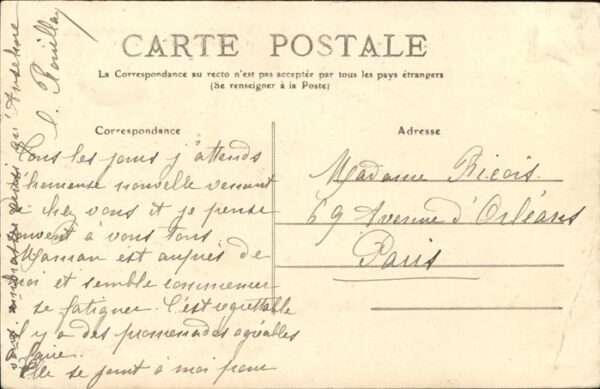 CARTE POSTALE
La Correspondance au recto n'est pas acceptée par tous les pays étrangers
(Se renseigner à la Poste)
Correspondance
Tous les jours j'attends
heureuse nouvelle venant
de chez vous et je pense
souvent à vous tous
Maman est auprès de
moi et semble commencer
se fatiguer. C'est regrettable
il y a des promenades agréables
faire.
Elle se joint à moi pour
vous embrasser ainsi qu'Anselme
L. Pouillay
Adresse
Madame Ricois
69 Avenue d'Orléans
Paris